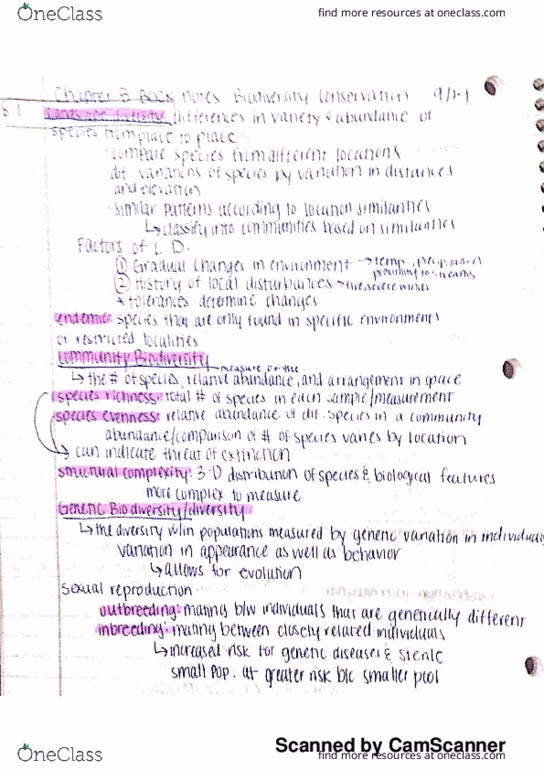 OneClass
find more resources at oneclass.com
Chapter 3 Book notes Biodiversity Conservation
Landscape diversity: differences in variety & abundance of
species from place to place
-compare species from different locations
dif. variations of species by variation in distances
and elevation
-similar patterns according to location similarities
↳ classify into communities based on similarities
Factors of L.D.
① Gradual Changes in environment → temp, precipitation
proximity to streams
② History of local disturbances → fire, severe winds
* tolerances determine changes
endemic: species that are only found in specific environments
or restricted localities
Community Biodiversity
measure of the
↳ the # of species, relative abundance, and arrangement in space
species richness: total # of species in each sample/measurement
species evenness: relative abundance of dif. species in a community
abundance/comparison of # of species varies by location
↳ can indicate threat of extinction
structural complexity: 3-D distribution of species & biological features
more complex to measure
Genetic Biodiversity/diversity
↳ the diversity w/in populations measured by genetic variation in individuals
variation in appearance as well as behavior
↳ allows for evolution
sexual reproduction
outbreeding: mating b/w individuals that are genetically different
inbreeding: mating between closely related individuals
↳ increased risk for genetic diseases &
small pop. at greater risk b/c smaller pool
Scanned by CamScanner
OneClass
find more resources at oneclass.com